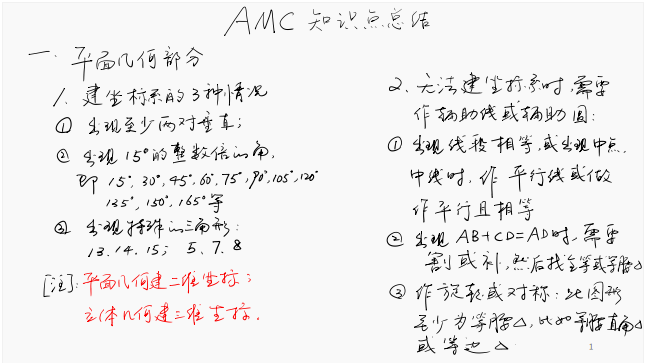 AMC 知识点总结
一、平面几何部分
1. 建坐标系的3种情况
① 出现至少两对垂直；
② 出现15°的整数倍的角，
即 15°, 30°, 45°, 60°, 75°, 90°, 105°, 120°
135°, 150°, 165°等
③ 出现特殊的三角形：
13. 14. 15； 5、7、8
[注]：平面几何建二维坐标；
立体几何建三维坐标．
2. 无法建坐标系时，需要
作辅助线或辅助圆：
① 出现线段相等，或出现中点，
中线时，作平行线或做
作平行且相等
② 出现 AB+CD=AD时，需要
割或补，然后找全等或等腰△
③ 作旋转或对称：此图形
至少为等腰△，比如等腰直角△
或等边△
1